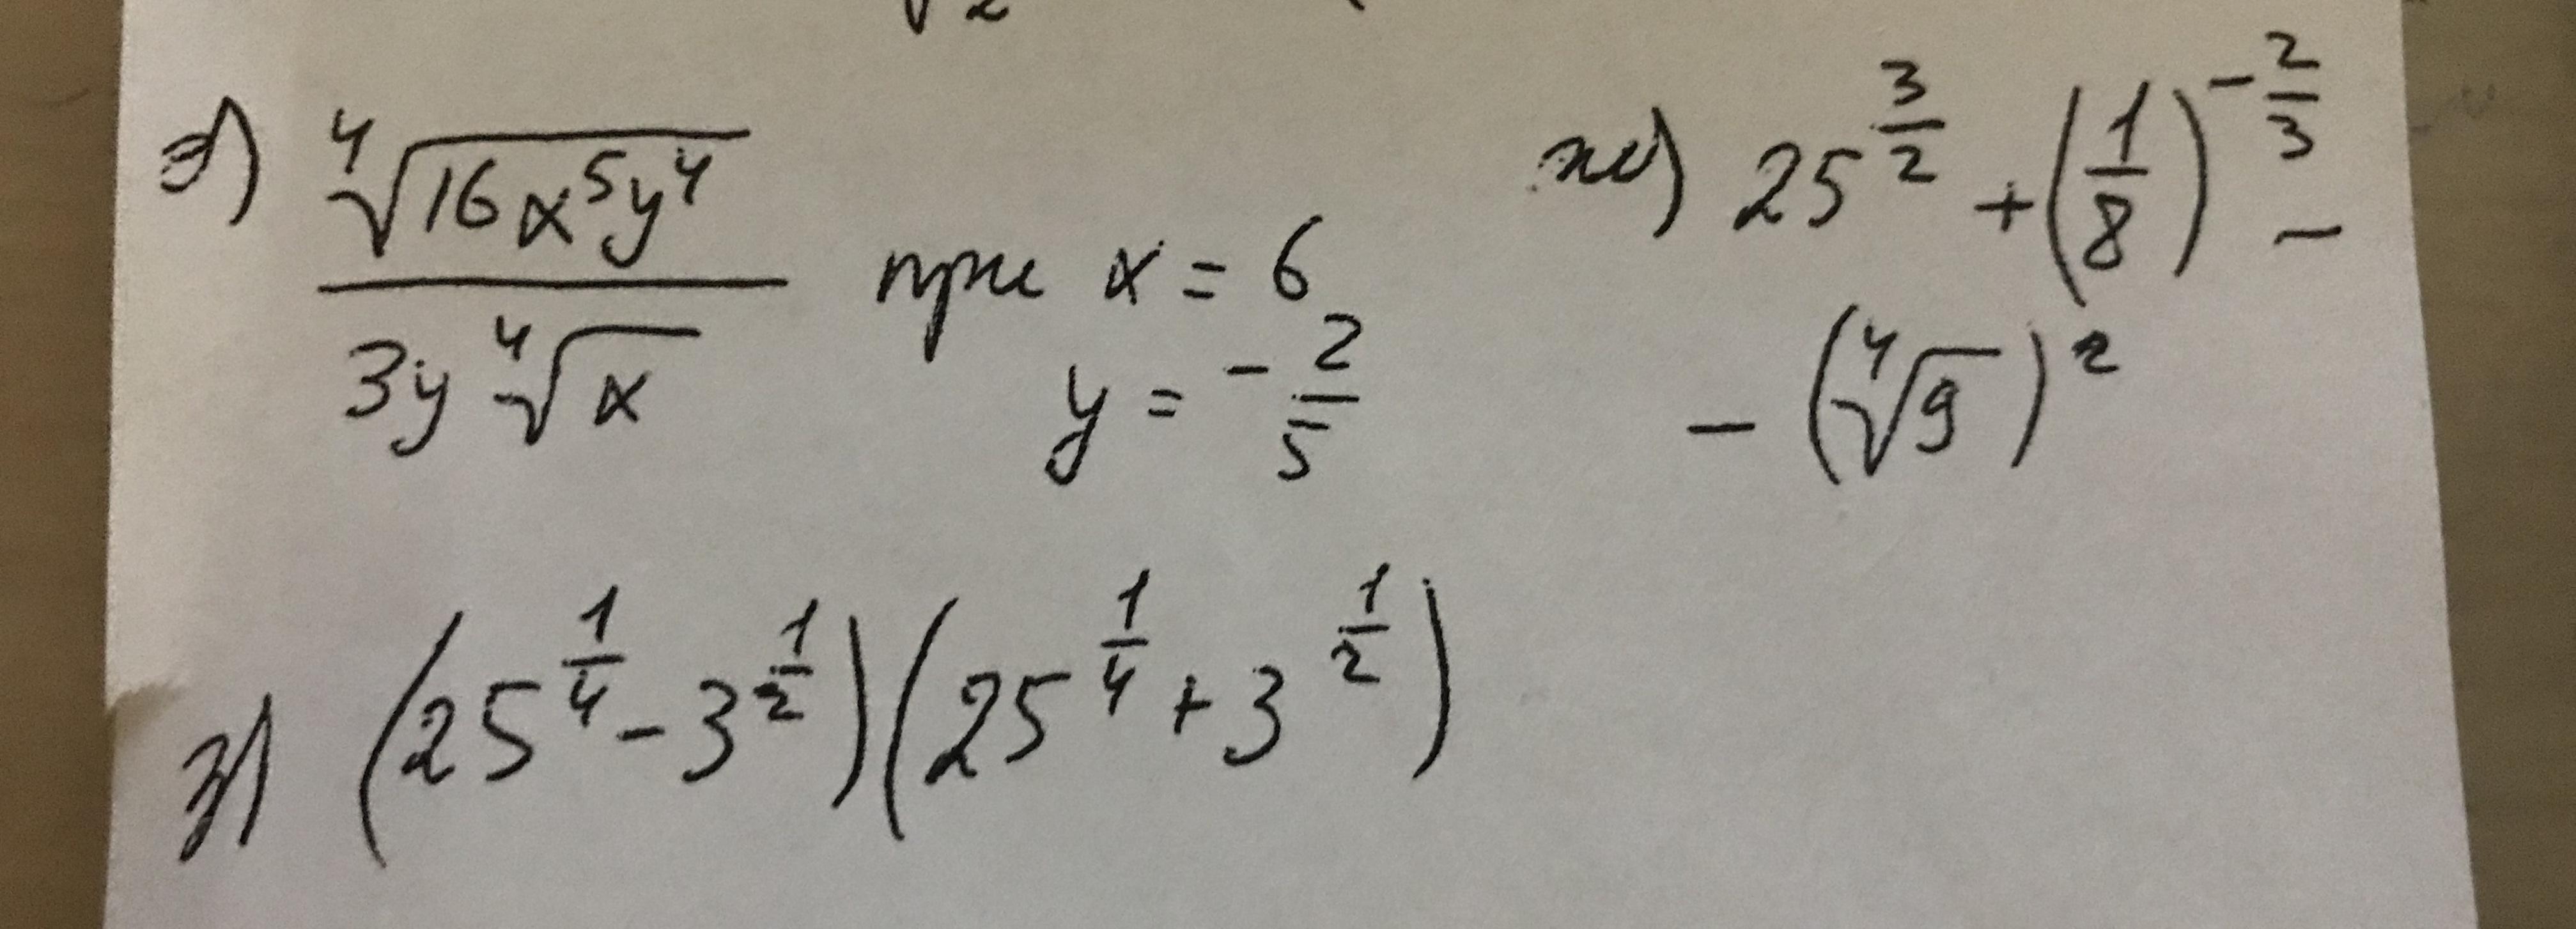 √2
е) ⁴√(16x⁵y⁴) / (3y ⁴√x) при x = 6
y = -2/5
ж) 25^(3/2) + (1/8)^(-2/3) -
- (⁴√9)²
з) (25^(1/4) - 3^(1/2))(25^(1/4) + 3^(1/2))